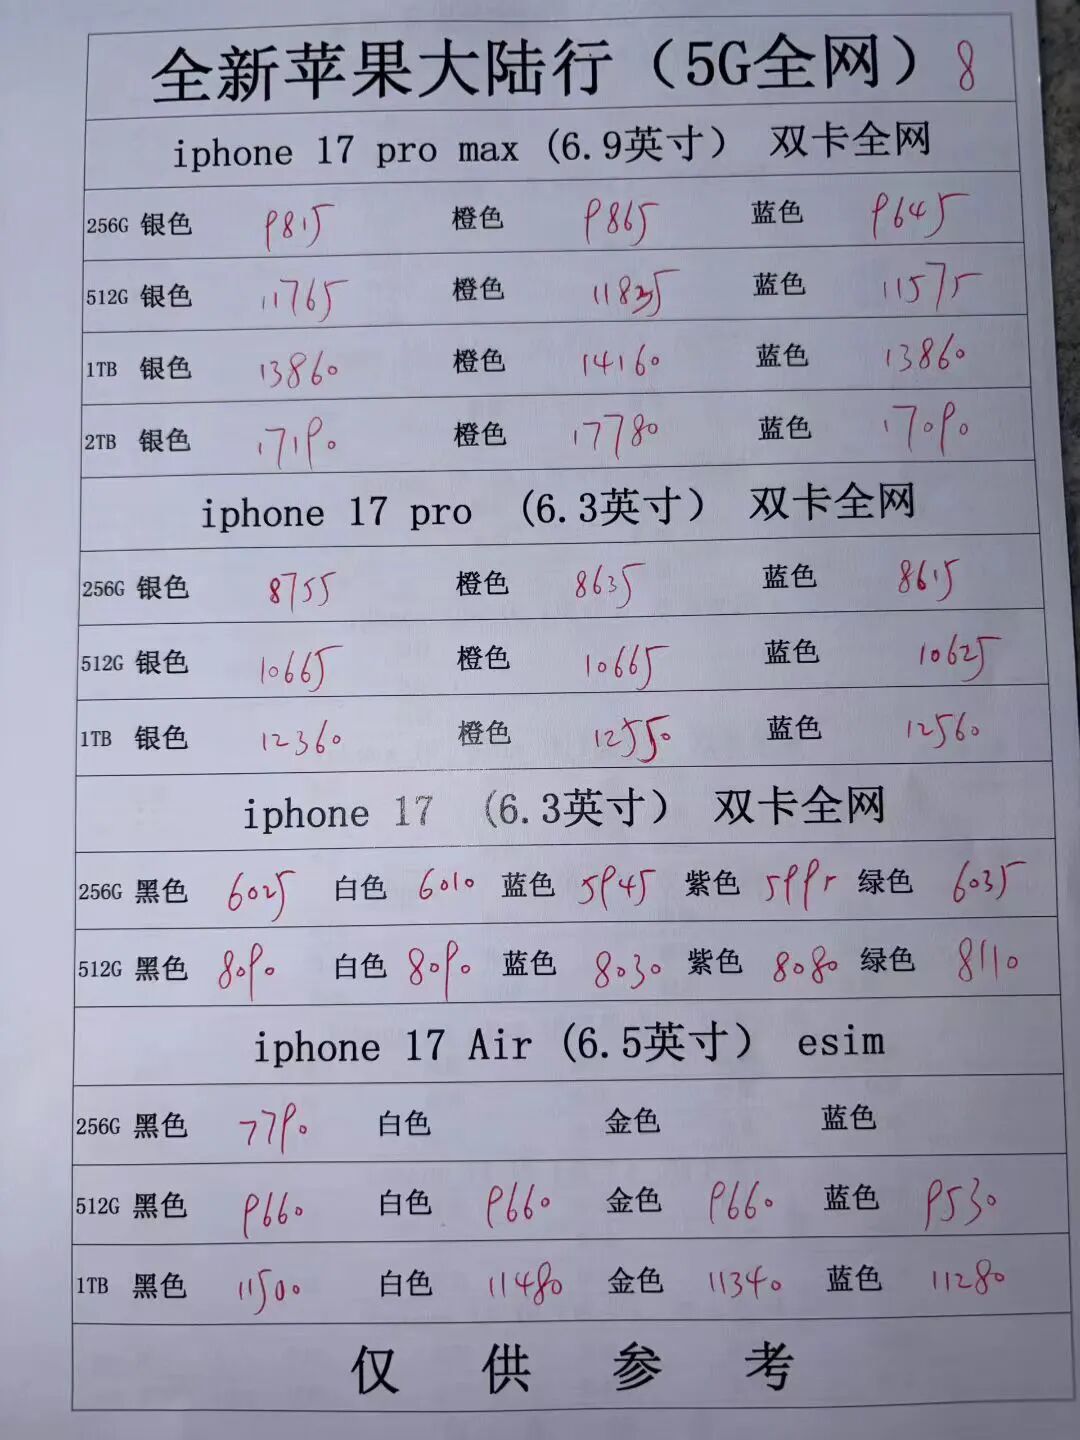 全新苹果大陆行（5G全网）8
iphone 17 pro max (6.9英寸） 双卡全网
256G 银色 9815 橙色 9865 蓝色 9645
512G 银色 11765 橙色 11835 蓝色 11575
1TB 银色 13860 橙色 14160 蓝色 13860
2TB 银色 17190 橙色 17780 蓝色 17090
iphone 17 pro （6.3英寸） 双卡全网
256G 银色 8755 橙色 8635 蓝色 8615
512G 银色 10665 橙色 10665 蓝色 10625
1TB 银色 12360 橙色 12550 蓝色 12560
iphone 17 （6.3英寸） 双卡全网
256G 黑色 6025 白色 6010 蓝色 5945 紫色 5995 绿色 6035
512G 黑色 8090 白色 8090 蓝色 8030 紫色 8080 绿色 8110
iphone 17 Air (6.5英寸） esim
256G 黑色 7790 白色 金色 蓝色
512G 黑色 9660 白色 9660 金色 9660 蓝色 9530
1TB 黑色 11500 白色 11480 金色 11340 蓝色 11280
仅 供 参 考